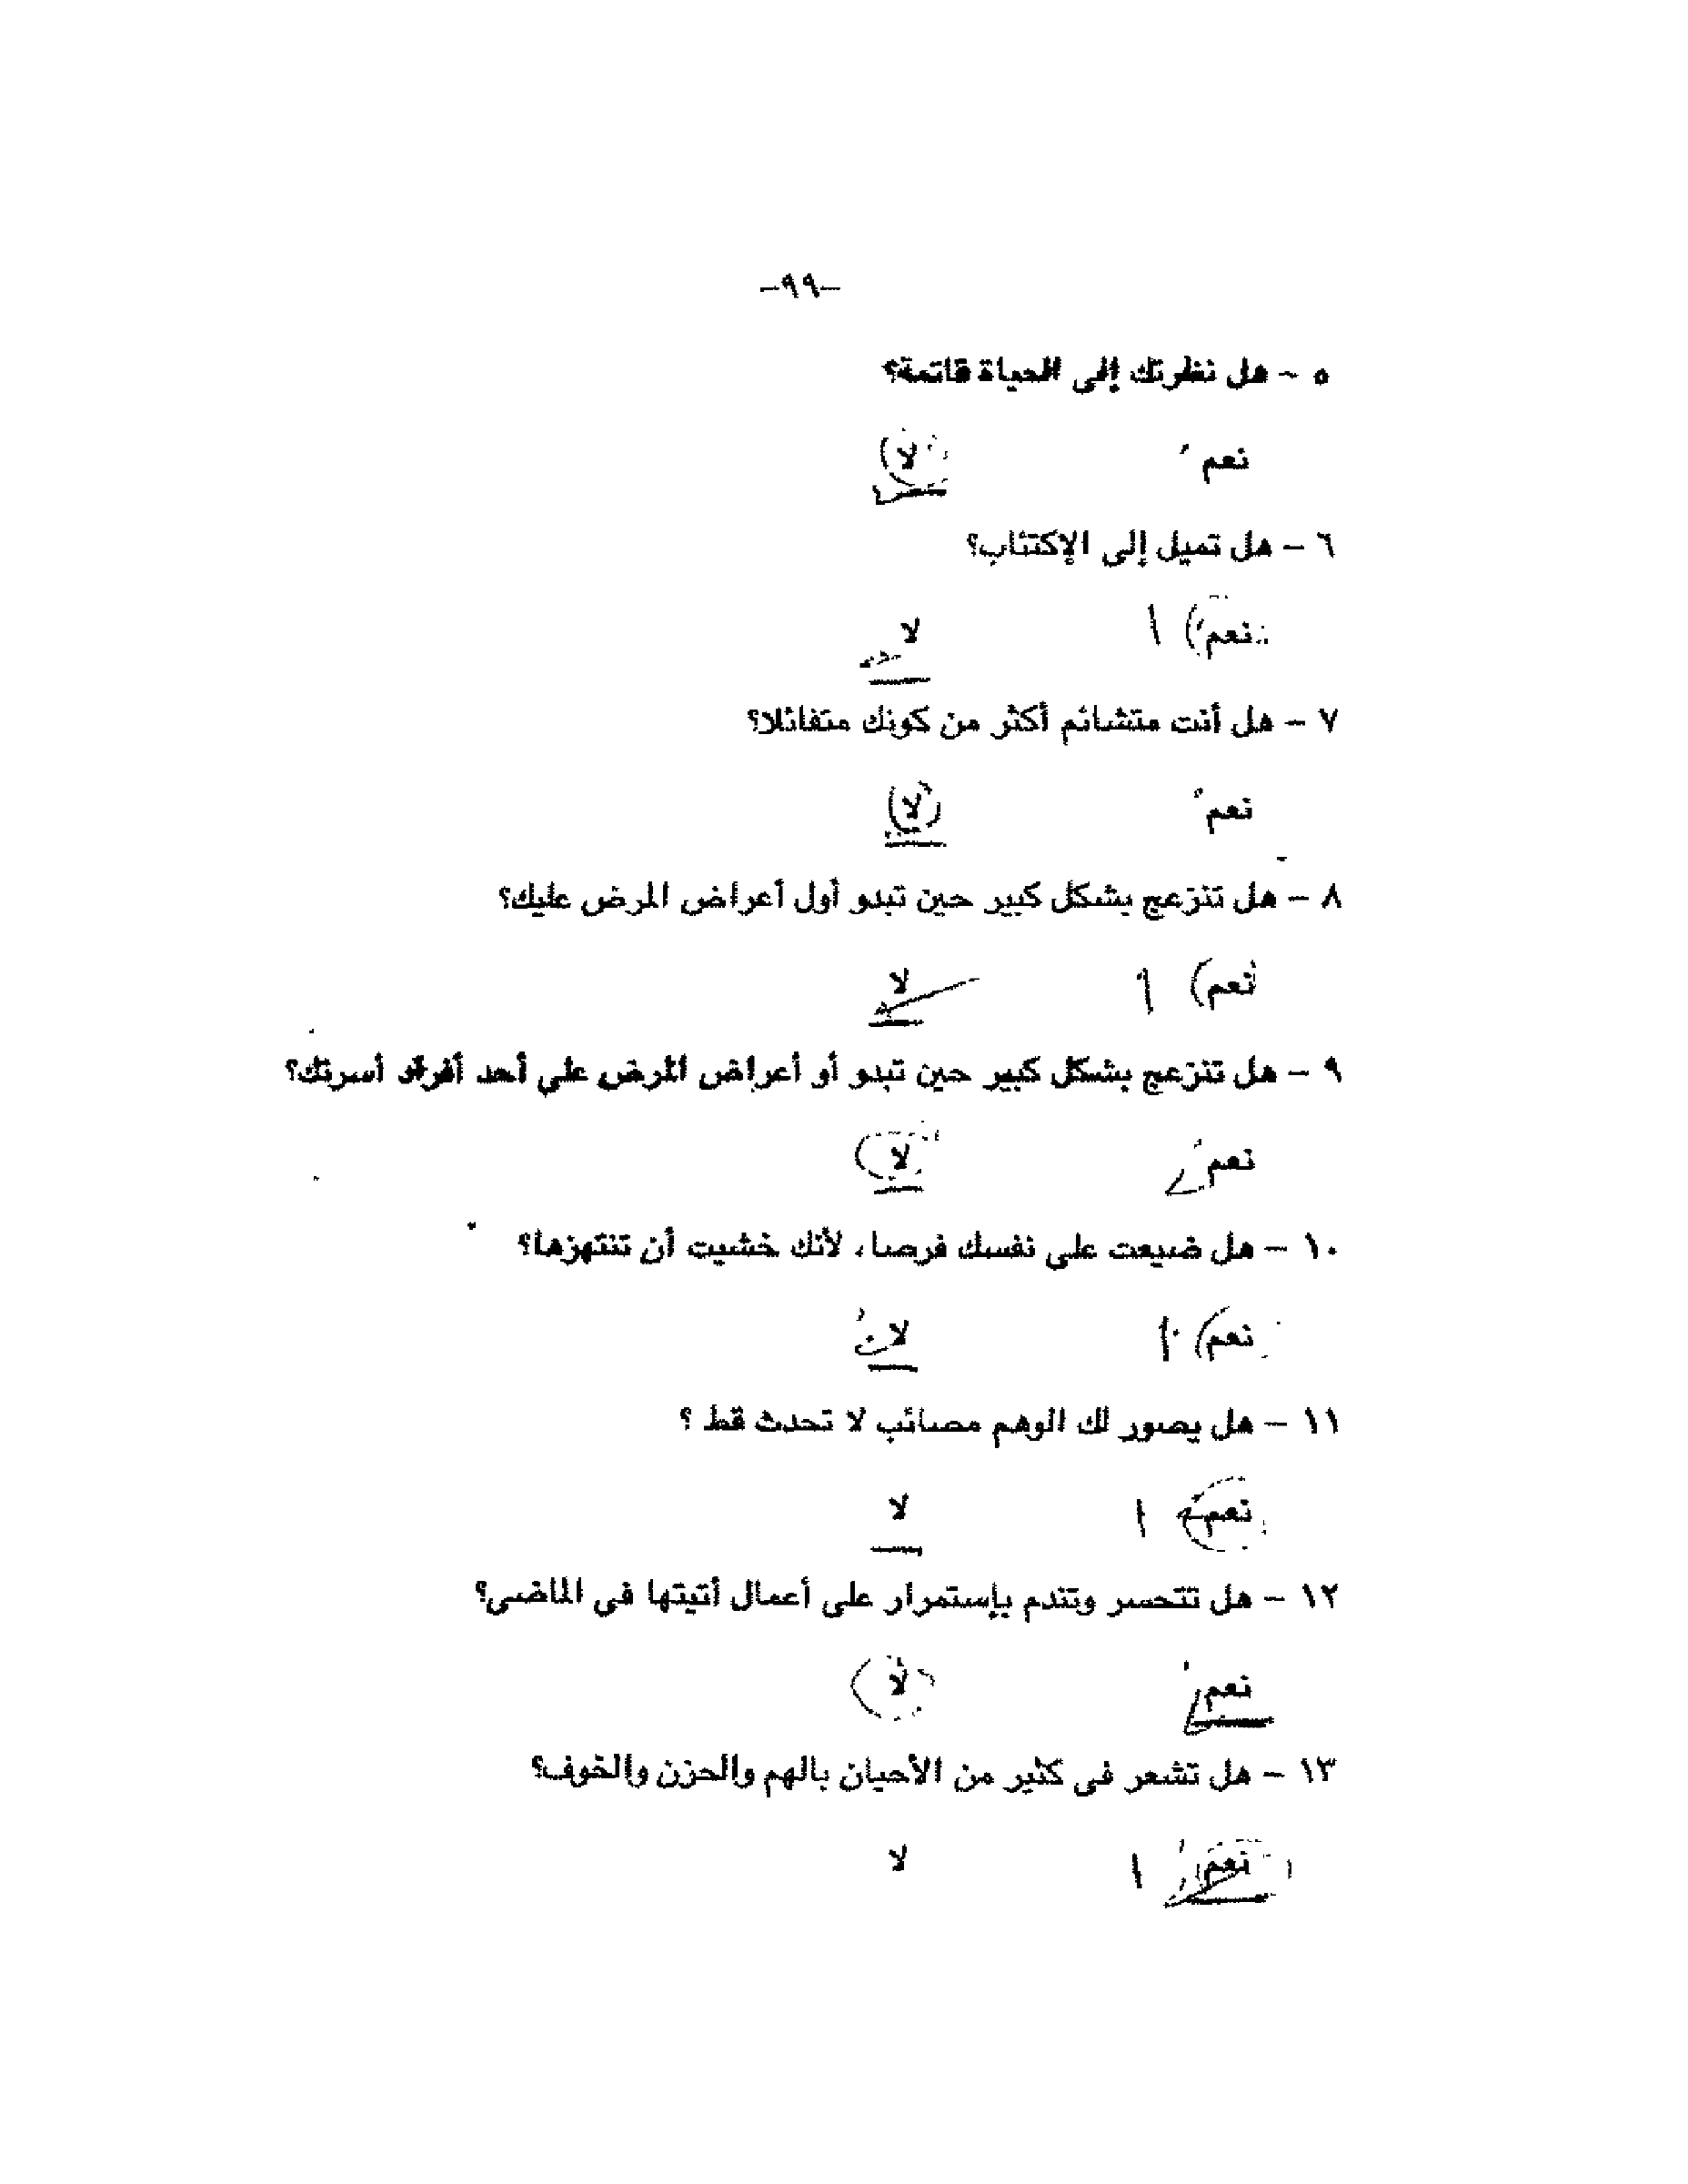 -٩٩-
٥ - هل نظرتك إلى الحياة قاتمة؟
نعم لا
٦ - هل تميل إلى الإكتئاب؟
نعم ١ لا
٧ - هل أنت متشائم أكثر من كونك متفائلا؟
نعم لا
٨ - هل تنزعج بشكل كبير حين تبدو أول أعراض المرض عليك؟
نعم ١ لا
٩ - هل تنزعج بشكل كبير حين تبدو أو أعراض المرض على أحد أفراد أسرتك؟
نعم لا
١٠ - هل ضيعت على نفسك فرصا، لأنك خشيت أن تنتهزها؟
نعم ١ لا
١١ - هل يصور لك الوهم مصائب لا تحدث قط ؟
نعم ١ لا
١٢ - هل تتحسر وتندم بإستمرار على أعمال أتيتها فى الماضى؟
نعم لا
١٣ - هل تشعر فى كثير من الأحيان بالهم والحزن والخوف؟
نعم ١ لا